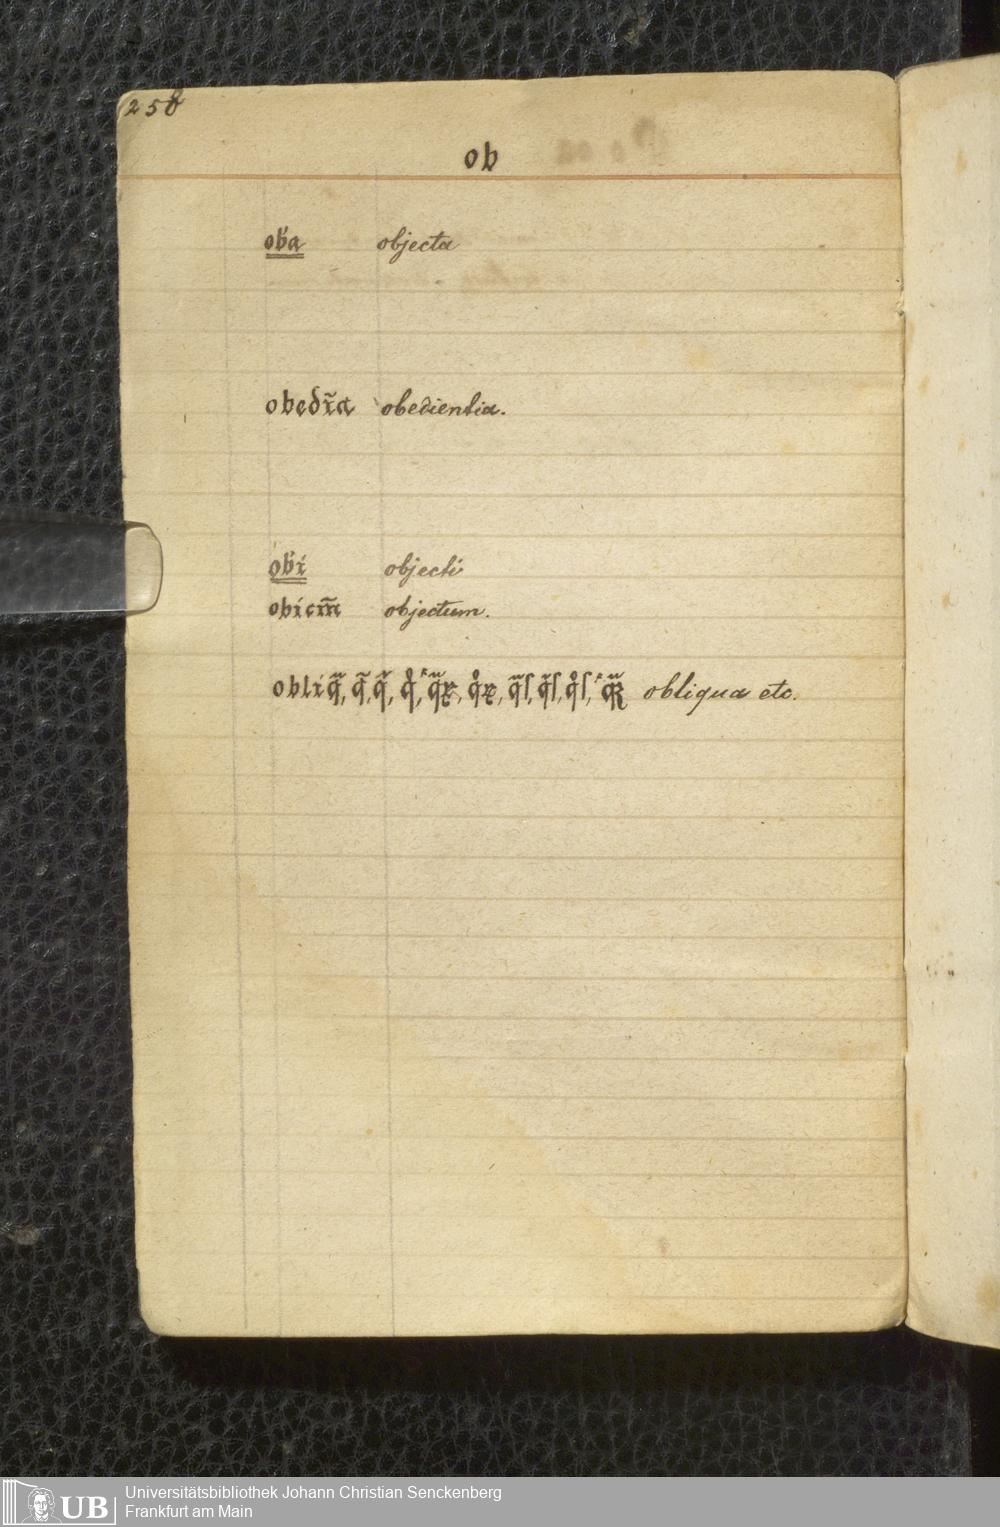 258
ob
oba objecta
obedĩa obedientia.
obi objecti
obicm̃ objectum.
obliq̃, q̃, q̃, q̊, obliqua etc.
UB Universitätsbibliothek Johann Christian Senckenberg
Frankfurt am Main